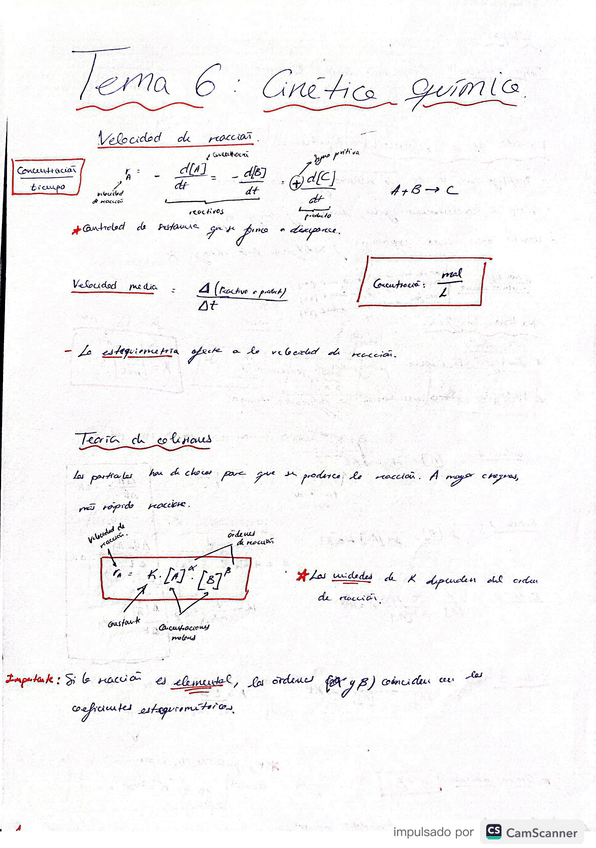 Tema 6: Cinética química.
Velocidad de reacción.
Concentración
tiempo
velocidad
de reacción
r_A = - d[A]/dt = - d[B]/dt = + d[C]/dt
concentración
signo positivo
reactivos
producto
A + B → C
* Cantidad de sustancia que se forma o desaparece.
Velocidad media = Δ (reactivo o producto) / Δt
Concentración: mol / L
- La estequiometría afecta a la velocidad de reacción.
Teoría de colisiones
Las partículas han de chocar para que se produzca la reacción. A mayor
más rápido reacciona.
velocidad de
reacción.
órdenes
de reacción
r_A = K · [A]^α · [B]^β
constante
Concentraciones
molares
* Las unidades de K dependen del orden
de reacción.
Importante: Si la reacción es elemental, los órdenes (α y β) coinciden con los
coeficientes estequiométricos.
impulsado por CS CamScanner